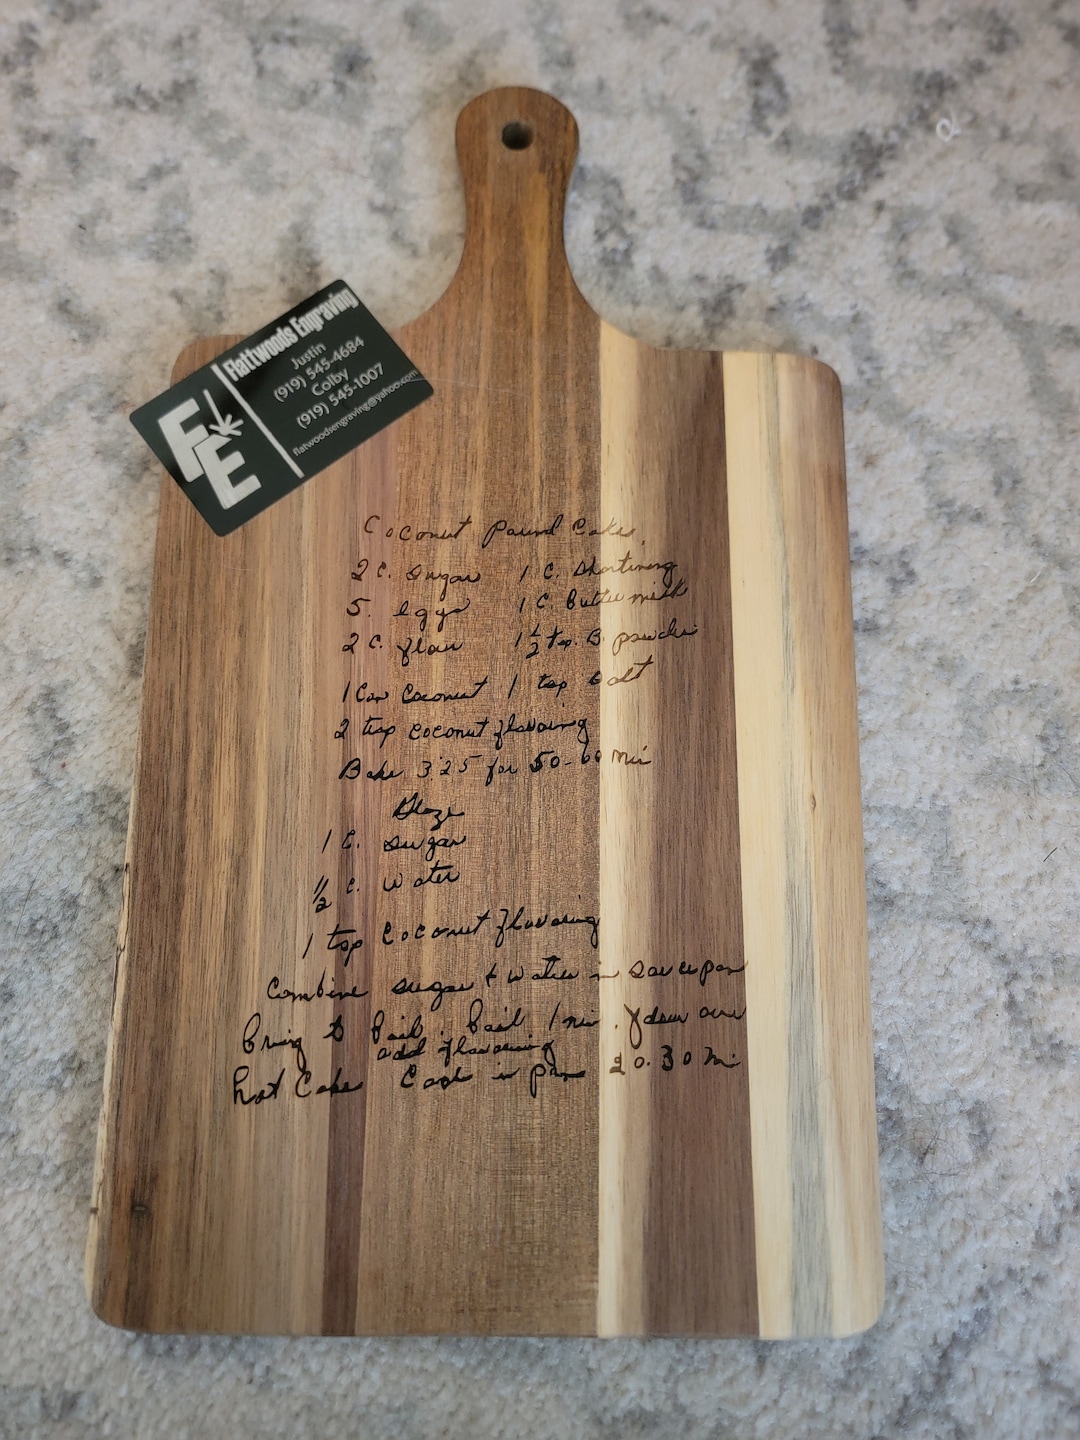 Flattwoods Engraving
Justin
(919) 545-4684
Colby
(919) 545-1007
flatwoodsengraving@yahoo.com
FE
Coconut Pound Cake
2 C. Sugar 1 C. Shortining
5. eggs 1 C. Buttermilk
2 C. flour 1 1/2 tsp. B. powder
1 Can Coconut 1 tsp Salt
2 tsp Coconut flavoring
Bake 325 for 50-60 Min
Glaze
1 C. Sugar
1/2 C. Water
1 tsp Coconut flavoring
Combine sugar & water in saucepan
bring to boil. boil 1 min. pour over
add flavoring
hot Cake Cool in pan 20-30 Min